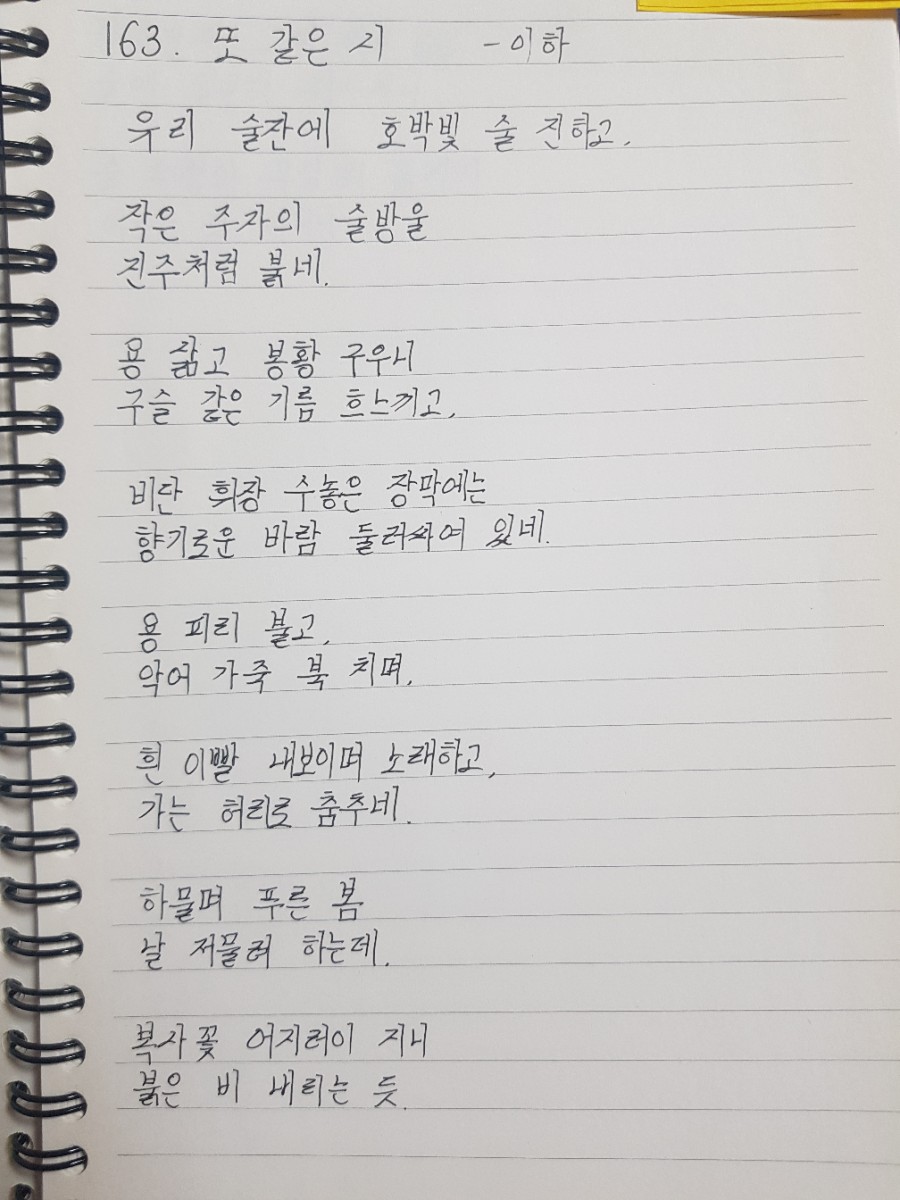 163. 또 같은 시 - 이하
우리 술잔에 호박빛 술 진하고,
작은 주자의 술방울
진주처럼 붉네.
용 삶고 봉황 구우니
구슬 같은 기름 흐느끼고,
비단 휘장 수놓은 장막에는
향기로운 바람 둘러싸여 있네.
용 피리 불고,
악어 가죽 북 치며,
흰 이빨 내보이며 노래하고,
가는 허리로 춤추네.
하물며 푸른 봄
날 저물려 하는데,
복사꽃 어지러이 지니
붉은 비 내리는 듯.